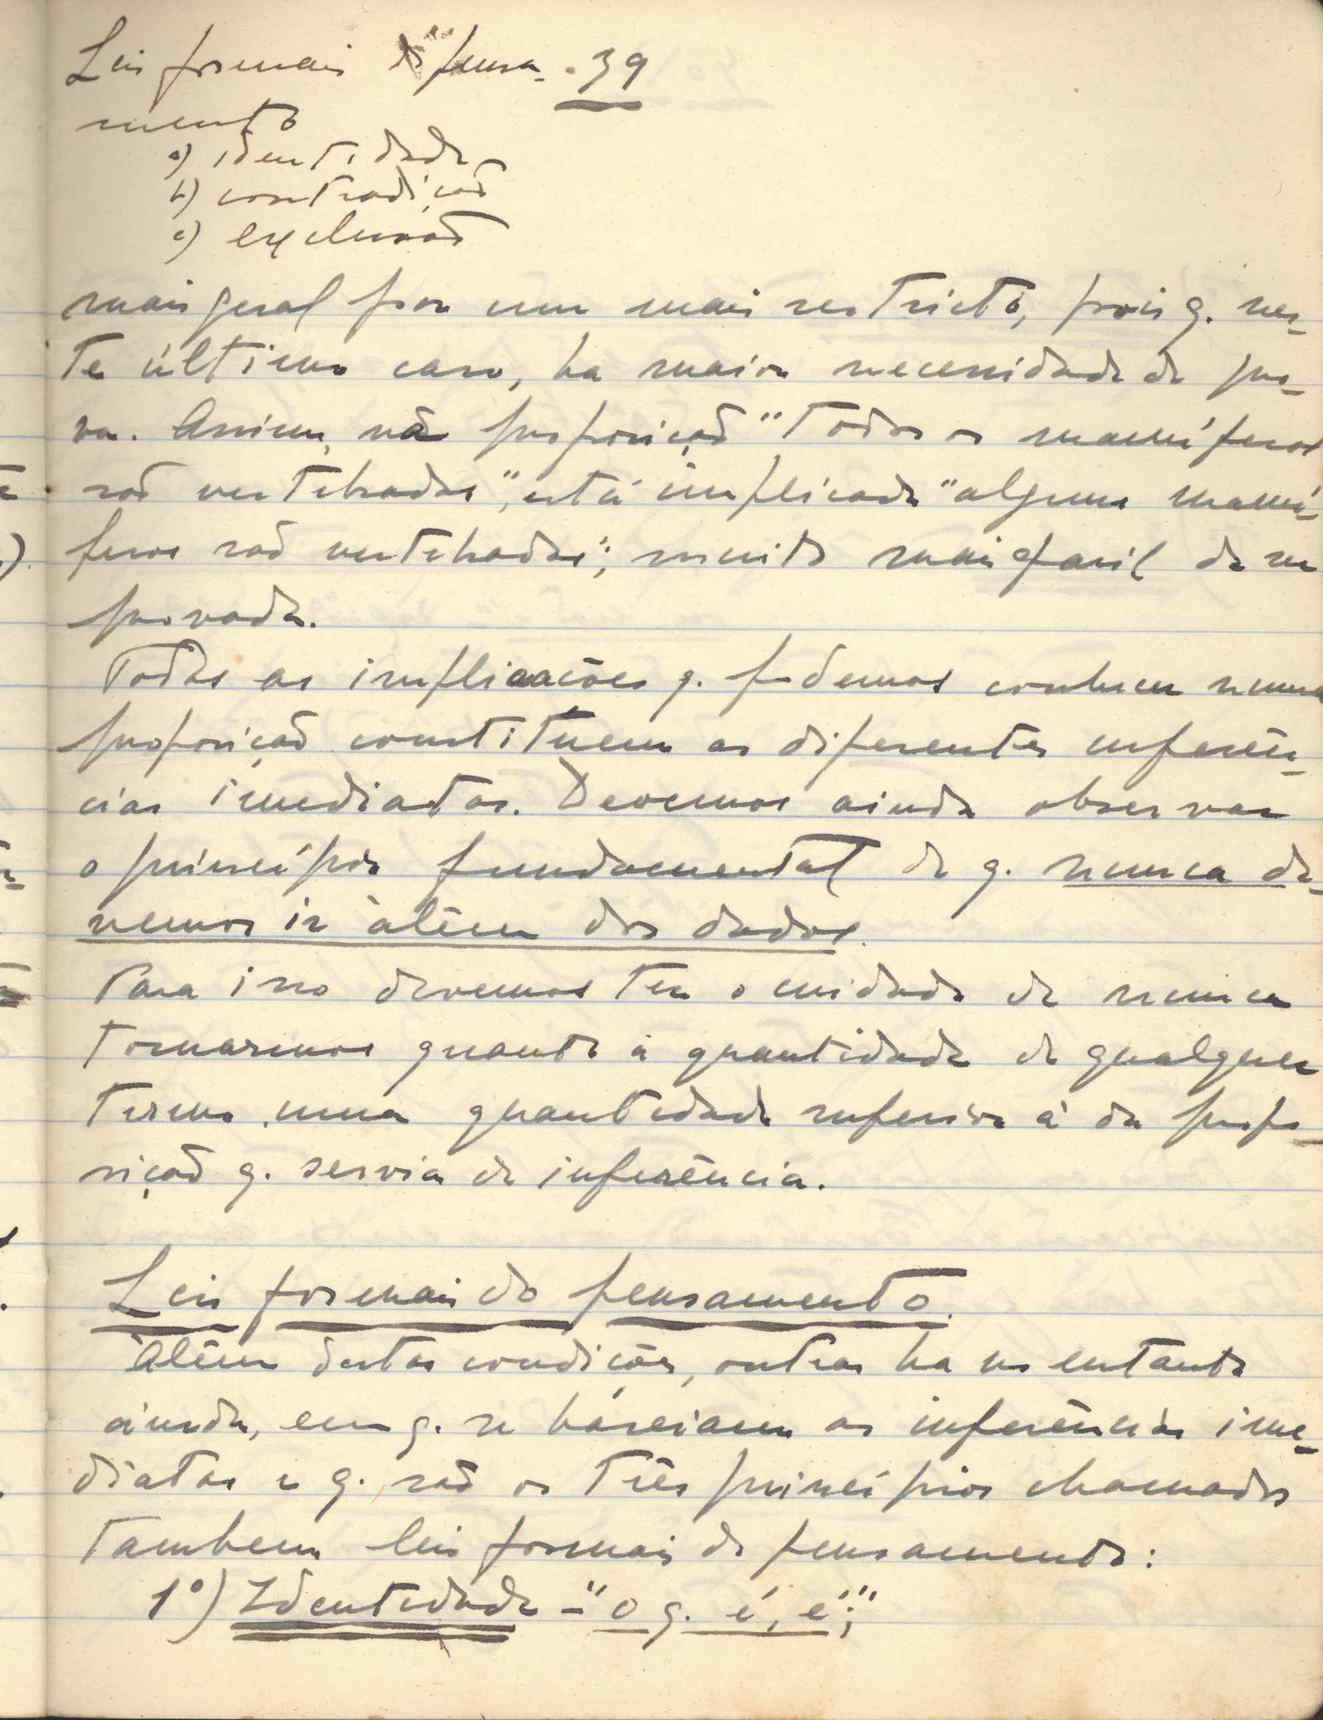 Leis formais do pensa- .39
mento
a) identidade
b) contradição
c) exclusão
mais geral por um mais restricto, pois q. nes-
te último caso, ha maior necessidade de pro-
va. Assim, na proposição "Todos os mamíferos
são vertebrados", está implicada "alguns mamí-
feros são vertebrados"; muito mais facil de ser
provada.
Todas as implicações q. podemos conhecer numa
proposição constitúem as diferentes inferên-
cias imediatas. Devemos ainda observar
o princípio fundamental de q. nunca de-
vemos ir àlêm dos dados.
Para isso devemos ter o cuidado de nunca
tomarmos quanto à quantidade de qualquer
termo uma quantidade inferior à da propo-
sição q. servia de inferência.
Leis formais do pensamento.
Àlêm destas condições, outras ha no entanto
ainda, em q. se báseiam as inferências ime-
diatas e q. são os três princípios chamados
tambem leis formais do pensamento:
1º) Identidade - "o q. é, é";